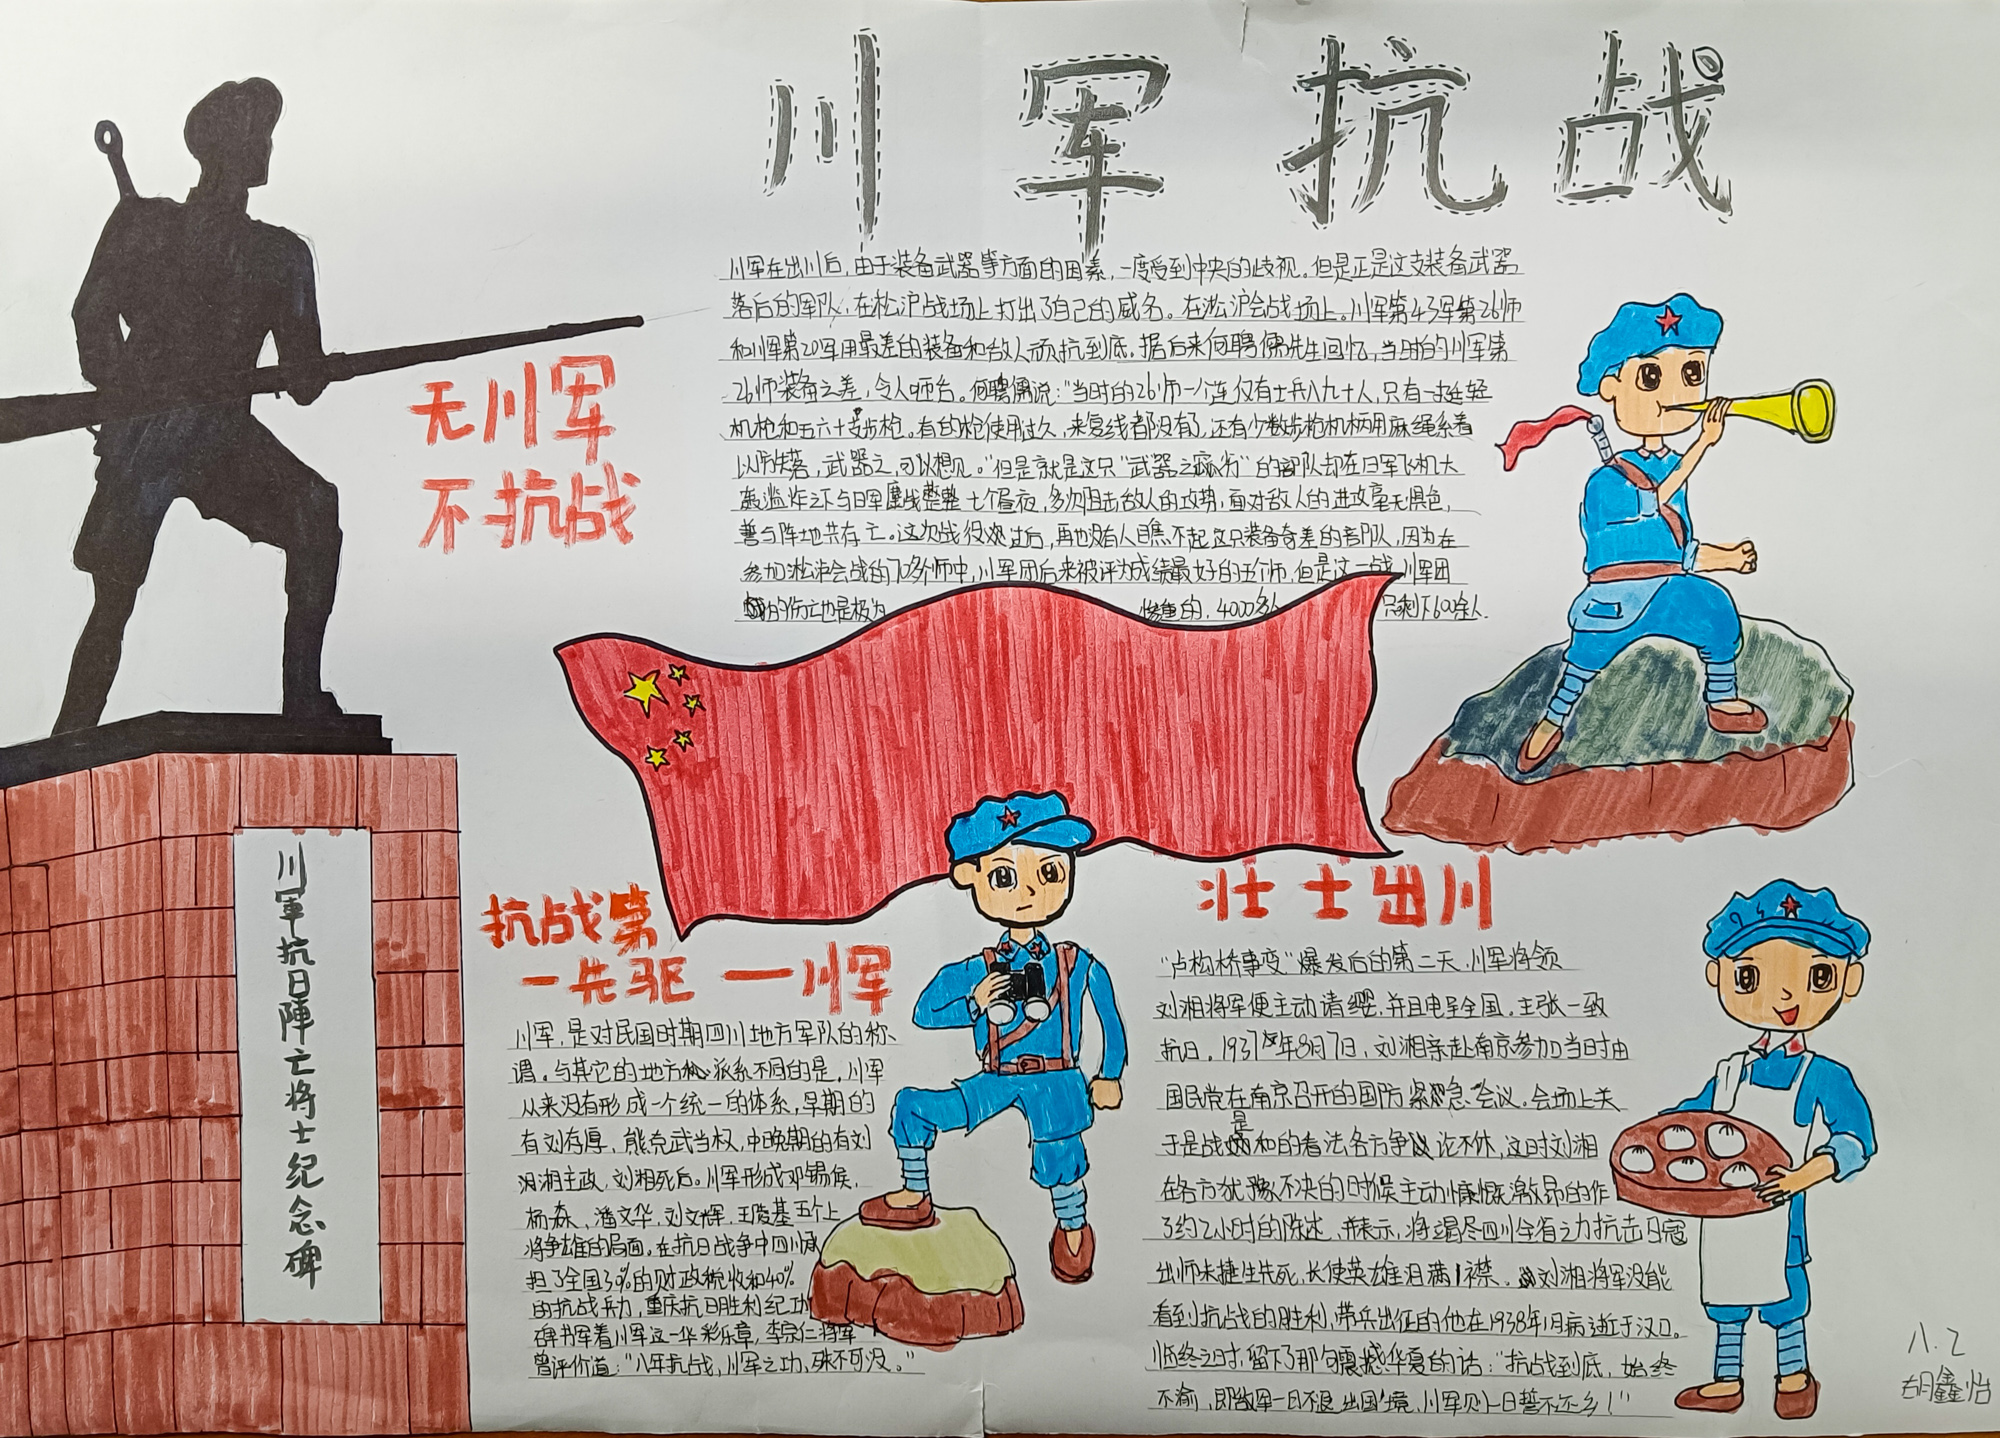 川军抗战
川军在出川后,由于装备武器等方面的因素,一度受到中央的歧视。但是正是这支装备武器
落后的军队,在淞沪战场上打出了自己的威名。在淞沪会战场上。川军第43军第26师
和川军第20军用最差的装备和敌人顽抗到底。据后来何聘儒先生回忆,当时的川军第
26师装备之差,令人咂舌。何聘儒说:“当时的26师一个连仅有士兵八九十人,只有一挺轻
机枪和五六十支步枪。有的枪使用过久,来复线都没有了,还有少数步枪机柄用麻绳系着
以防失落,武器之 可以想见。”但是就是这只“武器之 ”的部队却在日军飞机大
轰滥炸之下与日军鏖战整整七个昼夜,多次阻击敌人的攻势,面对敌人的进攻毫无惧色,
誓与阵地共存亡。这次战役过后,再也没有人瞧不起这只装备奇差的部队,因为在
参加淞沪会战的70多个师中,川军团后来被评为成绩最好的五个师,但是这一战川军团
的伤亡也是极为惨重的,4000多人只剩下600余人.
无川军
不抗战
川軍抗日陣亡将士纪念碑
抗战第
一先驱——川军
川军,是对民国时期四川地方军队的称
谓。与其它的地方派系不同的是,川军
从来没有形成一个统一的体系,早期的
有刘存厚,熊克武当权,中晚期的有刘
湘主政,刘湘死后。川军形成邓锡侯,
杨森、潘文华,刘文辉,王陵基五个上
将争雄的局面。在抗日战争中四川承
担了全国30%的财政税收和40%
的抗战兵力,重庆抗日胜利纪功
碑书写着川军这一华彩乐章,李宗仁将军
曾评价道:“八年抗战,川军之功,殊不可没。”
壮士出川
“卢构桥事变”爆发后的第二天,川军将领
刘湘将军便主动请缨,并且电呈全国。主张一致
抗日。1937年8月7日,刘湘亲赴南京参加当时由
国民党在南京召开的国防紧急会议。会场上关
于是战是和的看法各方争议论不休,这时刘湘
在各方犹豫不决的时候主动慷慨激昂的作
了约2小时的陈述,并表示,将竭尽四川全省之力抗击日寇
出师未捷身先死,长使英雄泪满襟。刘湘将军没能
看到抗战的胜利,带兵出征的他在1938年1月病逝于汉口。
临终之时,留下了那句震撼华夏的话:“抗战到底,始终
不渝,即敌军一日不退出国境,川军则一日誓不还乡!”
八.2
胡鑫怡